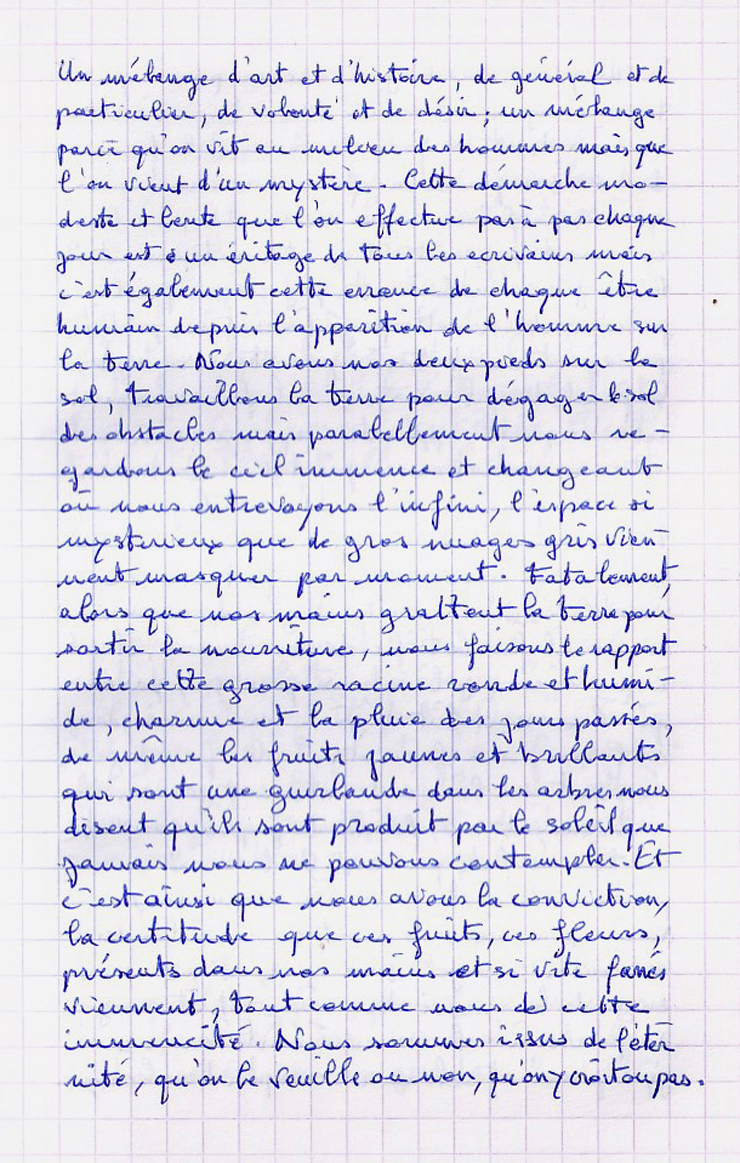 Un mélange d'art et d'histoire, de général et de
particulier, de volonté et de désir ; un mélange
parce qu'on vit au milieu des hommes mais que
l'on vient d'un mystère. Cette démarche mo-
deste et lente que l'on effectue pas à pas chaque
jour est un éritage de tous les ecrivains mais
c'est également cette errance de chaque être
humain depuis l'apparition de l'homme sur
la terre. Nous avons nos deux pieds sur le
sol, travaillons la terre pour dégager le sol
des obstacles mais parallellement nous re-
gardons le ciel immence et changeant
où nous entrevoyons l'infini, l'espace si
mysterieux que de gros nuages gris vien-
nent masquer par moment. Fatalement,
alors que nos mains grattent la terre pour
sortir la nourriture, nous faisons le rapport
entre cette grosse racine ronde et humi-
de, charnue et la pluie des jours passés,
de même les fruits jaunes et brillants
qui sont une guirlande dans les arbres nous
disent qu'ils sont produit par le soleil que
jamais nous ne pouvons contempler. Et
c'est ainsi que nous avons la conviction,
la certitude que ces fruits, ces fleurs,
présents dans nos mains et si vite fanés
viennent, tout comme nous de cette
immencité. Nous sommes issus de l'éter
nité, qu'on le veuille ou non, qu'on y croit ou pas.